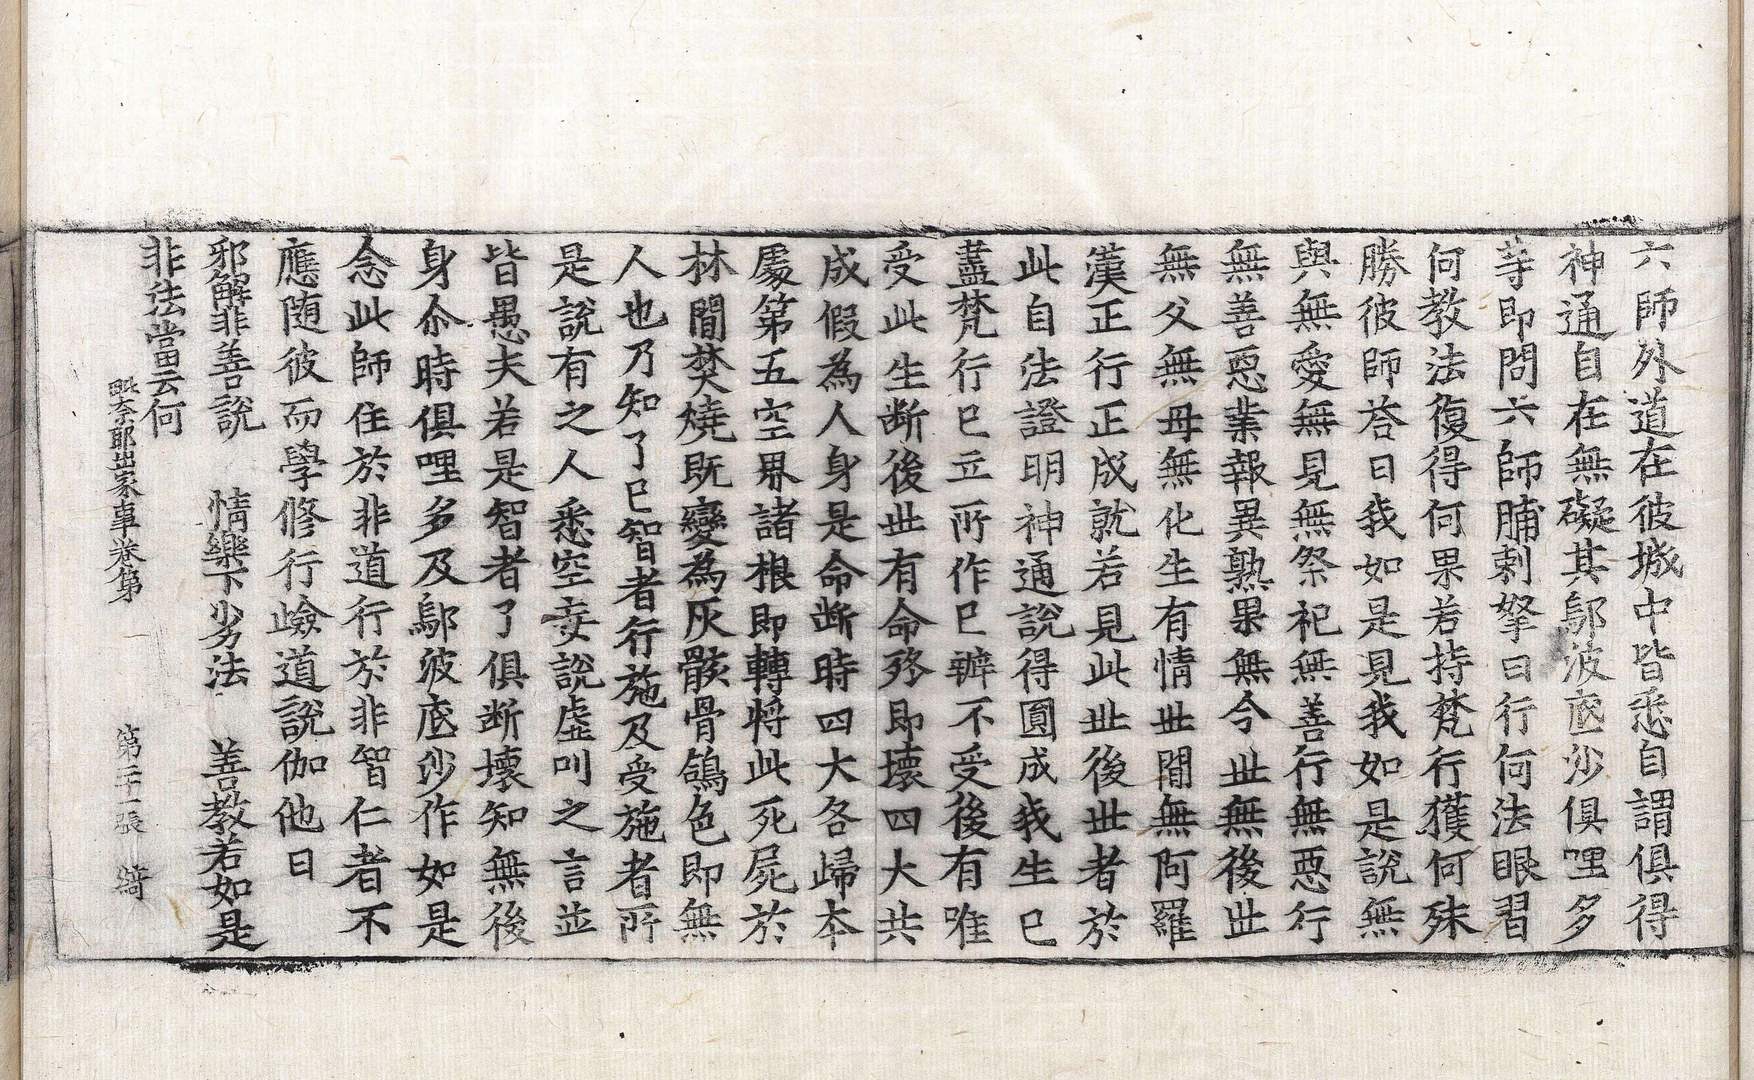 六師外道在彼城中皆悉自謂俱得
神通自在無礙其鄔波底沙俱哩多
等即問六師脯剌拏曰行何法眼習
何教法復得何果若持梵行獲何殊
勝彼師荅曰我如是見我如是說無
與無愛無見無祭祀無善行無惡行
無善惡業報異熟果無今世無後世
無父無母無化生有情世間無阿羅
漢正行正成就若見此世後世者於
此自法證明神通說得圓成我生已
盡梵行已立所作已辦不受後有唯
受此生断後世有命殁即壞四大共
成假為人身是命断時四大各歸本
處第五空界諸根即轉將此死屍於
林間焚燒既變為灰骸骨鴿色即無
人也乃知了已智者行施及受施者所
是說有之人悉空妄說虛叫之言並
皆愚夫若是智者了俱断壞知無後
身尒時俱哩多及鄔波底沙作如是
念此師住於非道行於非智仁者不
應随彼而學修行嶮道說伽他曰
邪解非善說　情樂下劣法　善教若如是
非法當云何
毗奈耶出家事卷第　第二十一張　綺